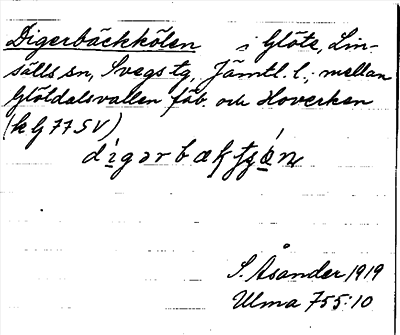 Digerbäckkölen i Glöte, Lin-
sälls sn, Svegs tg, Jämtl. l., mellan
Glöldalsvallen fäb. och Hoverken
(k G 77 SV)
S. Åsander 1919
Ulma 755:10